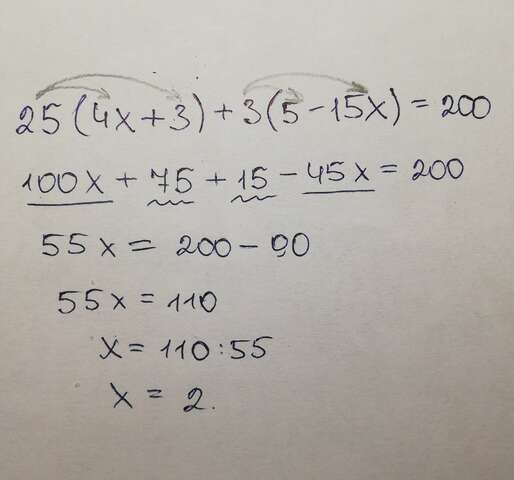 25(4x+3)+3(5-15x)=200
100x+75+15-45x=200
55x=200-90
55x=110
x=110:55
x=2.